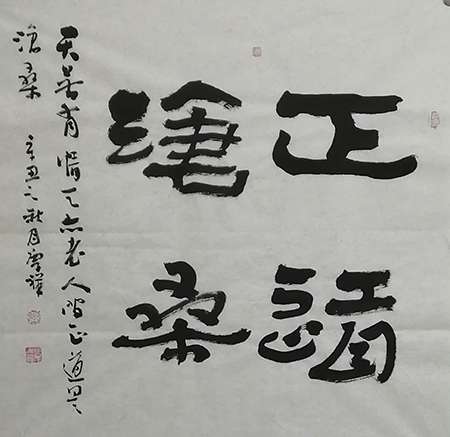 正道
滄桑
天若有情天亦老人間正道是
滄桑 辛丑之秋月